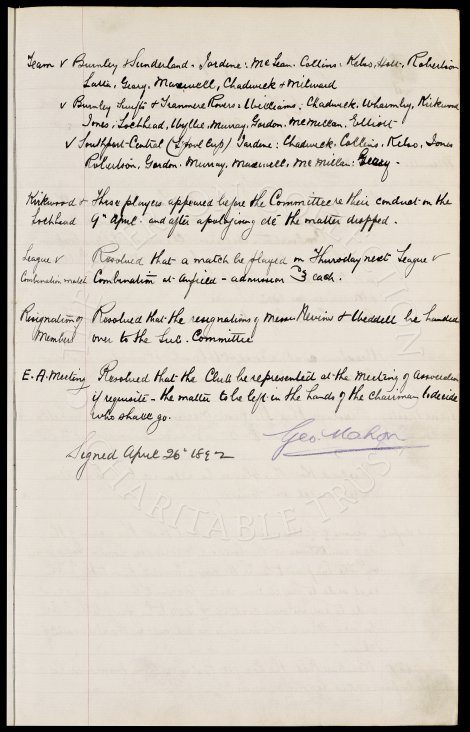 Team v Burnley & Sunderland - Jardine: McLean. Collins: Kelso, Holt, Robertson
Latta, Geary, Maxwell, Chadwick & Milward
v Burnley Swifts & Tranmere Rovers: Williams; Chadwick, Wharmby, Kirkwood
Jones, Lochhead, Wyllie, Murray, Gordon, McMillan, Elliott
v Southport Central (L'pool Cup) Jardine: Chadwick, Collins, Kelso, Jones
Robertson, Gordon, Murray, Maxwell, McMillan: Geary.
Kirkwood & These players appeared before the Committee re their conduct on the
Lochhead 9th April. and after apologising &c the matter dropped.
League v Resolved that a match be played on Thursday next League v
Combination match Combination at Anfield - admission 3d each.
Resignation of Resolved that the resignations of Messrs Nevison & Weddell be handed
Members over to the Sub. Committee
E.A. Meeting Resolved that the Club be represented at the Meeting of Association
if requisite - the matter to be left in the hands of the chairman to decide
who shall go.
Geo. Mahon
Signed April 26th 1892
CHARITABLE TRUST